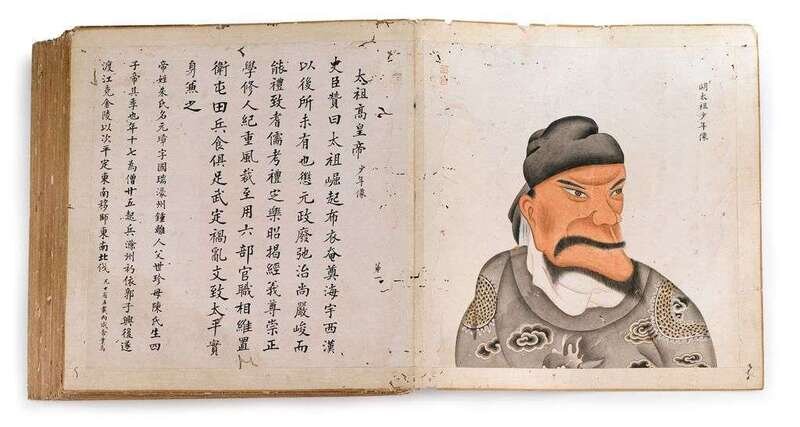 明太祖少年像
太祖高皇帝 少年像
史臣贊曰太祖崛起布衣奄奠海宇西漢
以後所未有也懲元政廢弛治尚嚴峻而
能禮致耆儒考禮定樂昭揭經義尊崇正
學修人紀重風裁至用六部官職相維置
衛屯田兵食俱足武定禍亂文致太平實
身兼之
帝姓朱氏名元璋字國瑞濠州鍾離人父世珍母陳氏生四
子帝其季也年十七為僧廿五起兵濠州初依郭子興後遂
渡江克金陵以次平定東南移師東南北伐